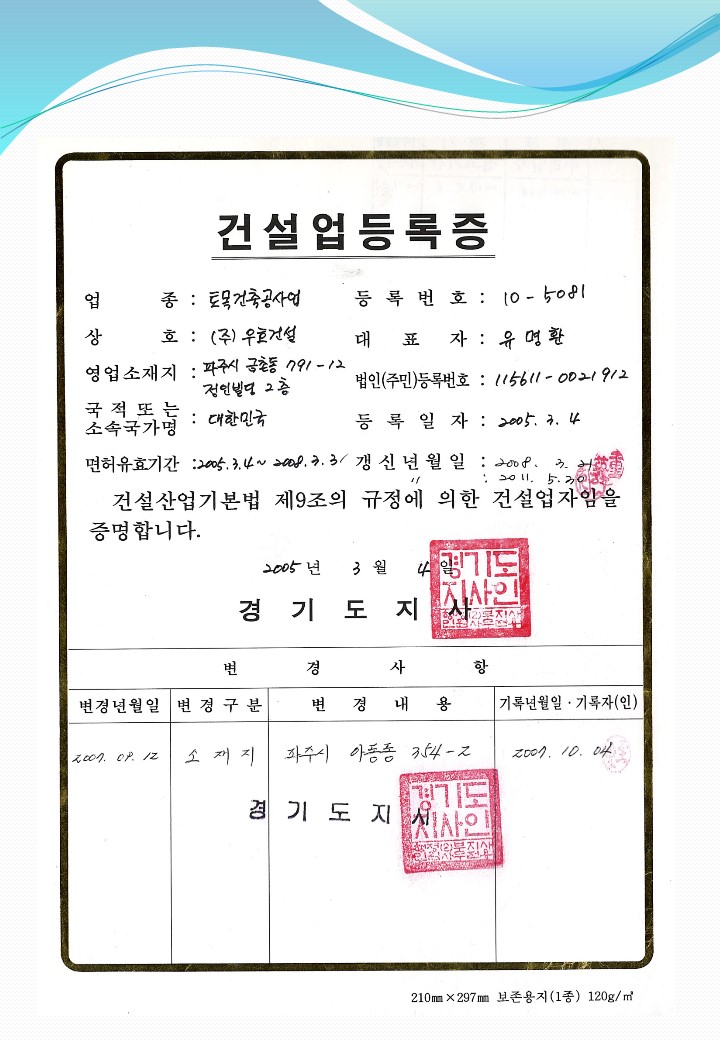 건설업등록증
업 종 : 토목건축공사업 등 록 번 호 : 10-5081
상 호 : (주)우호건설 대 표 자 : 유명환
영업소재지 : 파주시 금촌동 791-12
정인빌딩 2층
법인(주민)등록번호 : 115611-0021912
국 적 또 는
소속국가명 : 대한민국 등 록 일 자 : 2005. 3. 4
면허유효기간 : 2005.3.4~2008.3.31 갱신년월일 : 2008. 3. 21
〃 : 2011. 5. 30
건설산업기본법 제9조의 규정에 의한 건설업자임을
증명합니다.
2005 년 3 월 4 일
경 기 도 지 사
경기도
지사인
변 경 사 항
변경년월일 변경구분 변 경 내 용 기록년월일·기록자(인)
2007. 09. 12 소재지 파주시 아동동 354-2 2007. 10. 04
경 기 도 지 사
경기도
지사인
210㎜×297㎜ 보존용지(1종) 120g/㎡